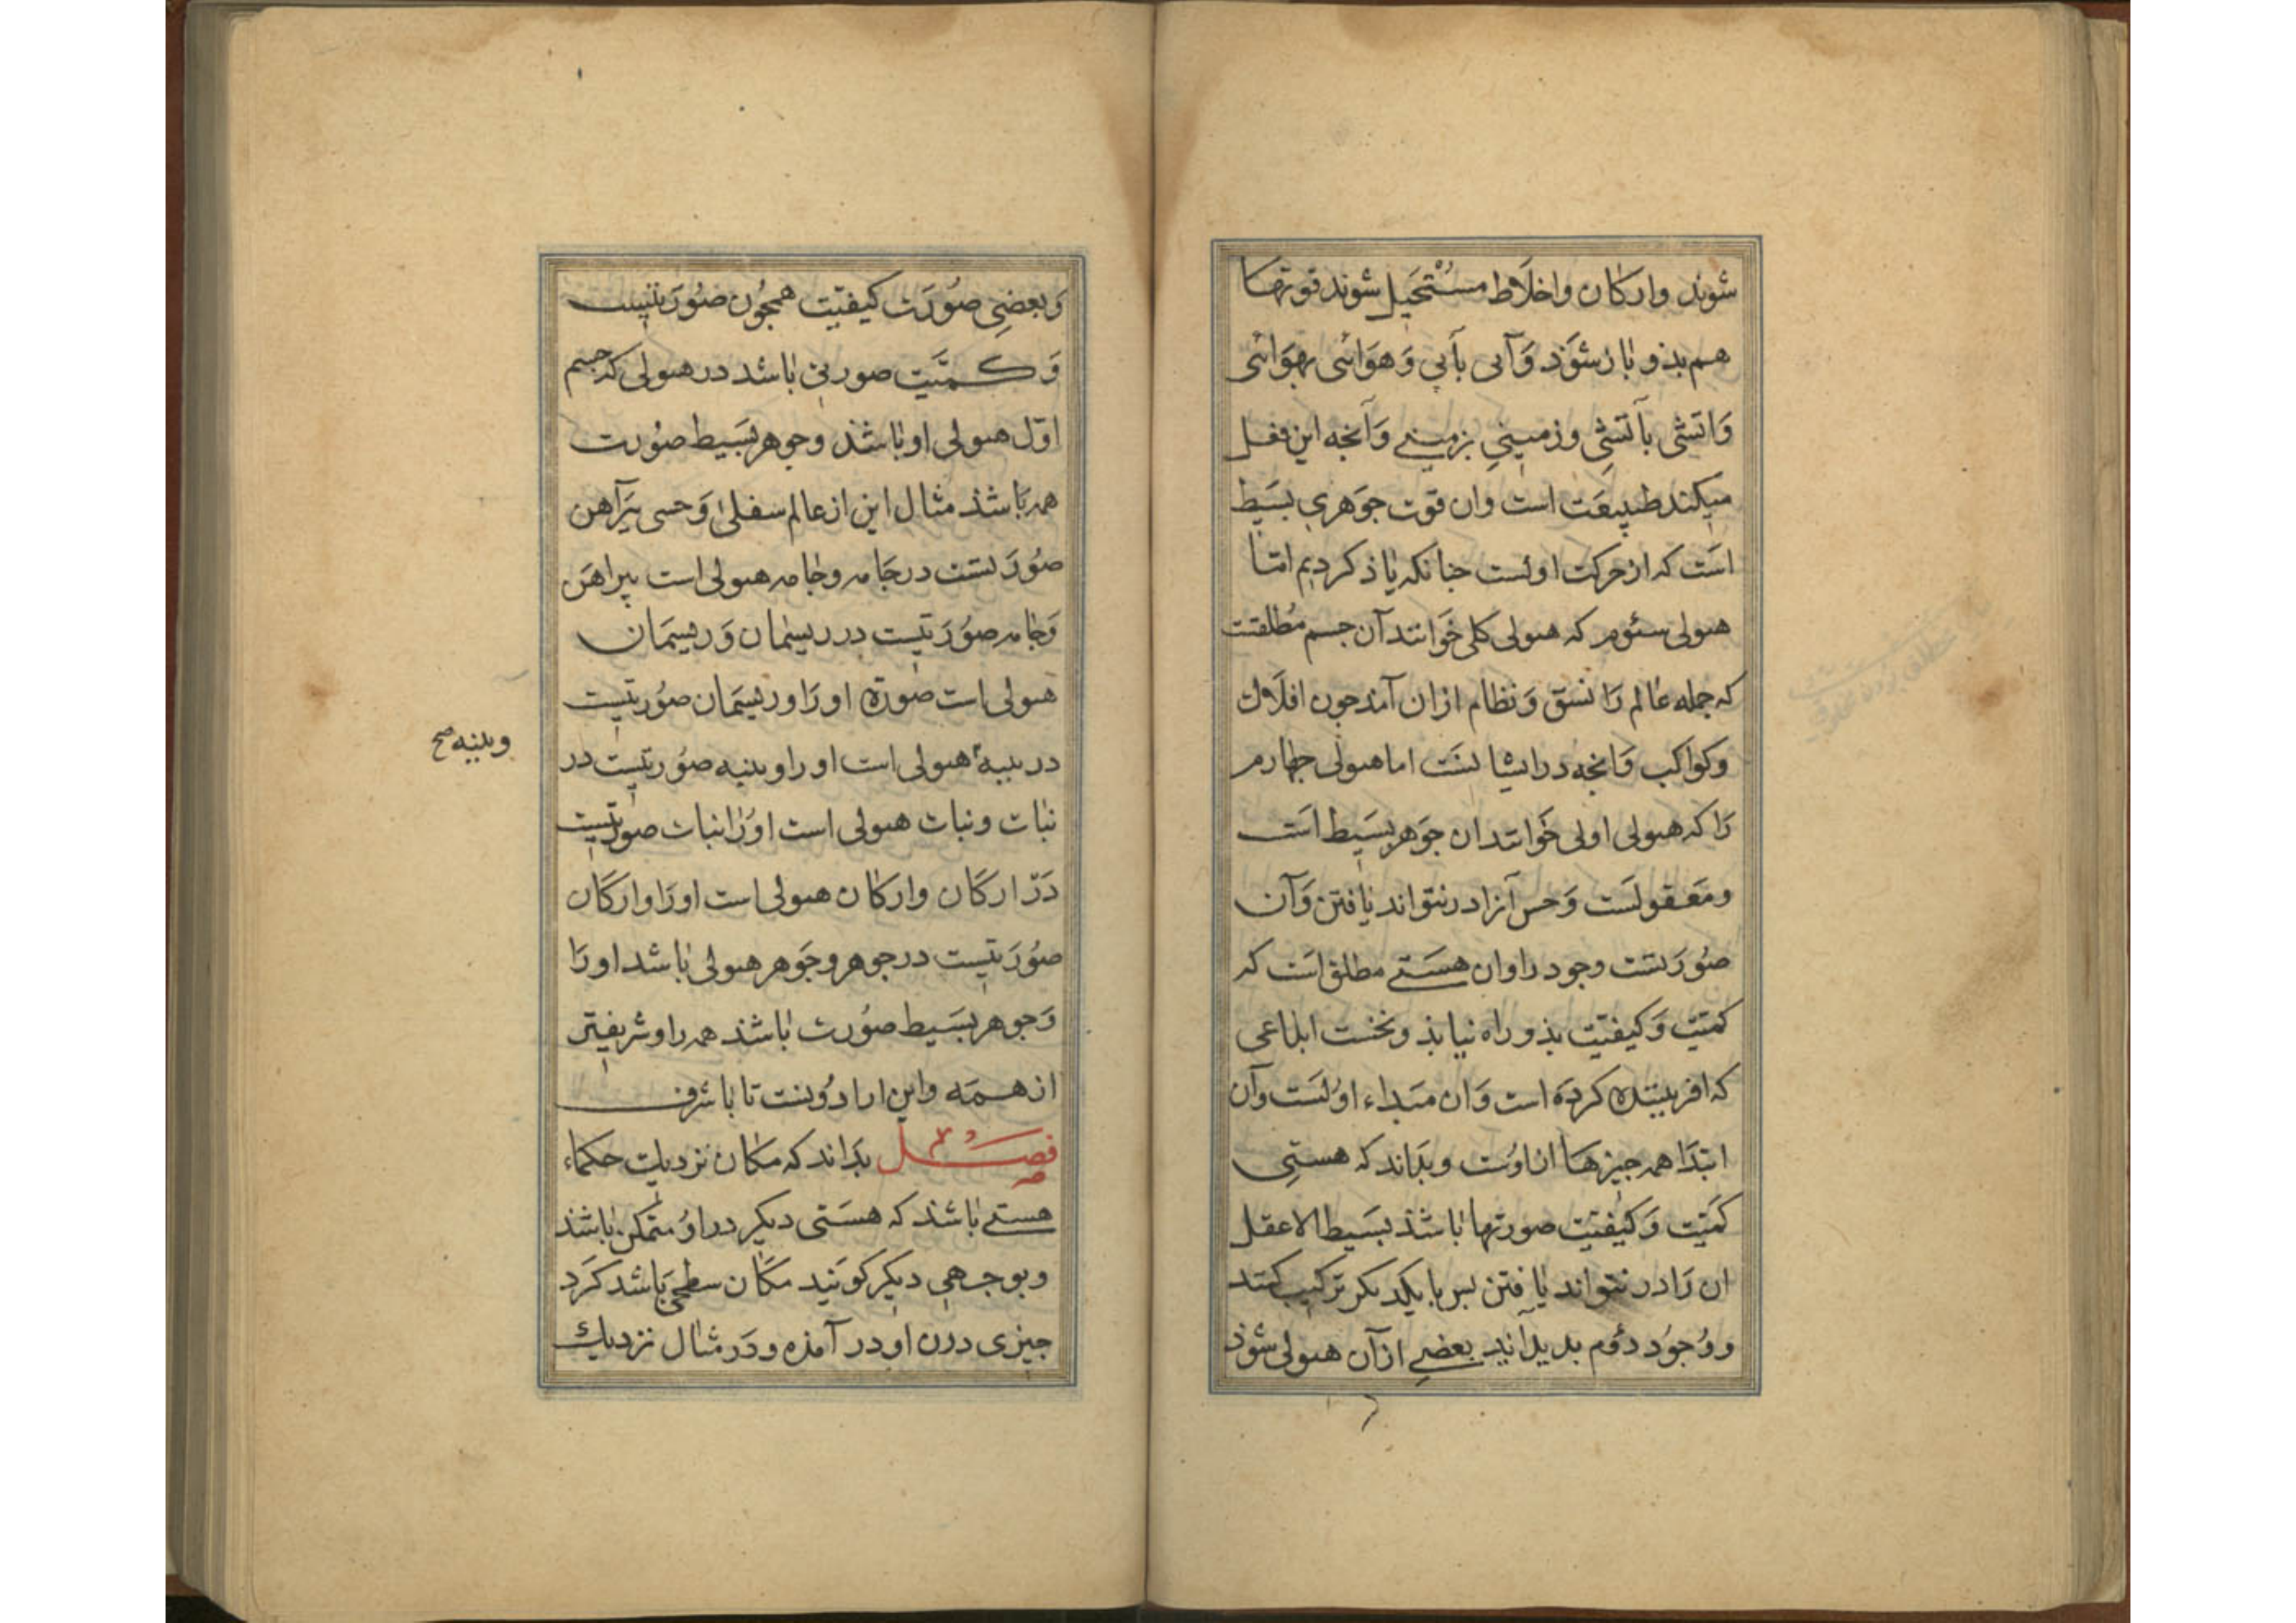 شوند وارکان واخلاط مستحیل شوند قوتها
هم بذو باز شوذ وآبی بآبی وهوائی بهوائی
واتشی بآتشی وزمینی بزمینی وآنجه این فعل
میکند طبیعت است وان قوت جوهری بسیط
است که از حرکت اولست جنانکه یاذ کردیم امّا
هیولی سئوم که هیولی کلی خوانند آن جسم مُطلقتت
که جمله عالم را نسق ونظام ازان آمد جون افلاك
وکواکب وانجه در ایشا نست اما هیولی جهارم
را که هیولی اولی خوانند ان جوهر بسیط است
ومعقولست وحس آنرا در نتواند یافتن وآن
صورتست وجود را وان هستی مطلق است که
کمیّت وکیفیّت بذو راه نیابذ ونخست ابداعی
که افریننده کرده است وان مبداء اوّلست وآن
ابتدا همه جیزها از اوست وبداند که هستی
کمیّت وکیفیّت صورتها باشذ بسیط الا عقل
ان را در نتواند یافتن بس با یکدیکر ترکیب کند
ووجود دوم بدید آید بعضی از آن هیولی شوذ
وبعضی صورت کیفیّت همجون صورتیست
وکمیّت صورتی باشد در هیولی که جسم
اوّل هیولی او باشذ وجوهر بسیط صورت
همه باشذ مثال این از عالم سفلی وحسی پیرآهن
صورتست در جامه وجامه هیولی است پیراهن
وجامه صورتیست در ریسمان وریسمان
هیولی است صورة او را وریسمان صورتیست
در پنبه هیولی است او را وپنبه صورتیست در
وپنبه صح
نبات ونبات هیولی است اورا نبات صورتیست
در ارکان وارکان هیولی است اورا وارکان
صورتیست در جوهر وجوهر هیولی باشد اورا
وجوهر بسیط صورت باشذ همه را وشریفتر
از همه واین ارادونست تا باشرف
فصل ٣ بداند که مکان نزدیك حکماء
هستی باشذ که هستی دیکر در او متمکن باشذ
وبوجهی دیکر کویند مکان سطحی باشد کرد
جیزی درن او در آمذه ودر مثال نزدیك